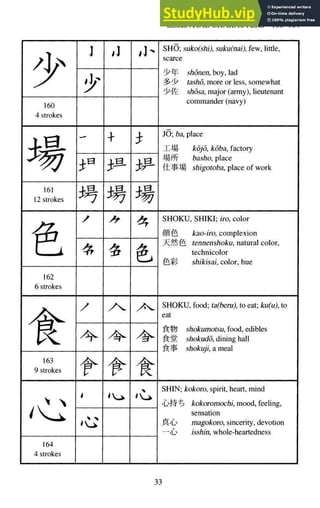 StudyHub.vip
Experienced writers
Online delivery
24/7 support
少
160
4 strokes
SHŌ; suko(shi), suku(nai), few, little,
scarce
少年 shōnen, boy, lad
多少 tashō, more or less, somewhat
少佐 shōsa, major (army), lieutenant
commander (navy)
場
161
12 strokes
JŌ; ba, place
工場 kōjō, kōba, factory
場所 basho, place
仕事場 shigotoba, place of work
色
162
6 strokes
SHOKU, SHIKI; iro, color
顔色 kao-iro, complexion
天然色 tennenshoku, natural color,
technicolor
色彩 shikisai, color, hue
食
163
9 strokes
SHOKU, food; ta(beru), to eat; ku(u), to
eat
食物 shokumotsu, food, edibles
食堂 shokudō, dining hall
食事 shokuji, a meal
心
164
4 strokes
SHIN; kokoro, spirit, heart, mind
心持ち kokoromochi, mood, feeling,
sensation
真心 magokoro, sincerity, devotion
一心 isshin, whole-heartedness
33